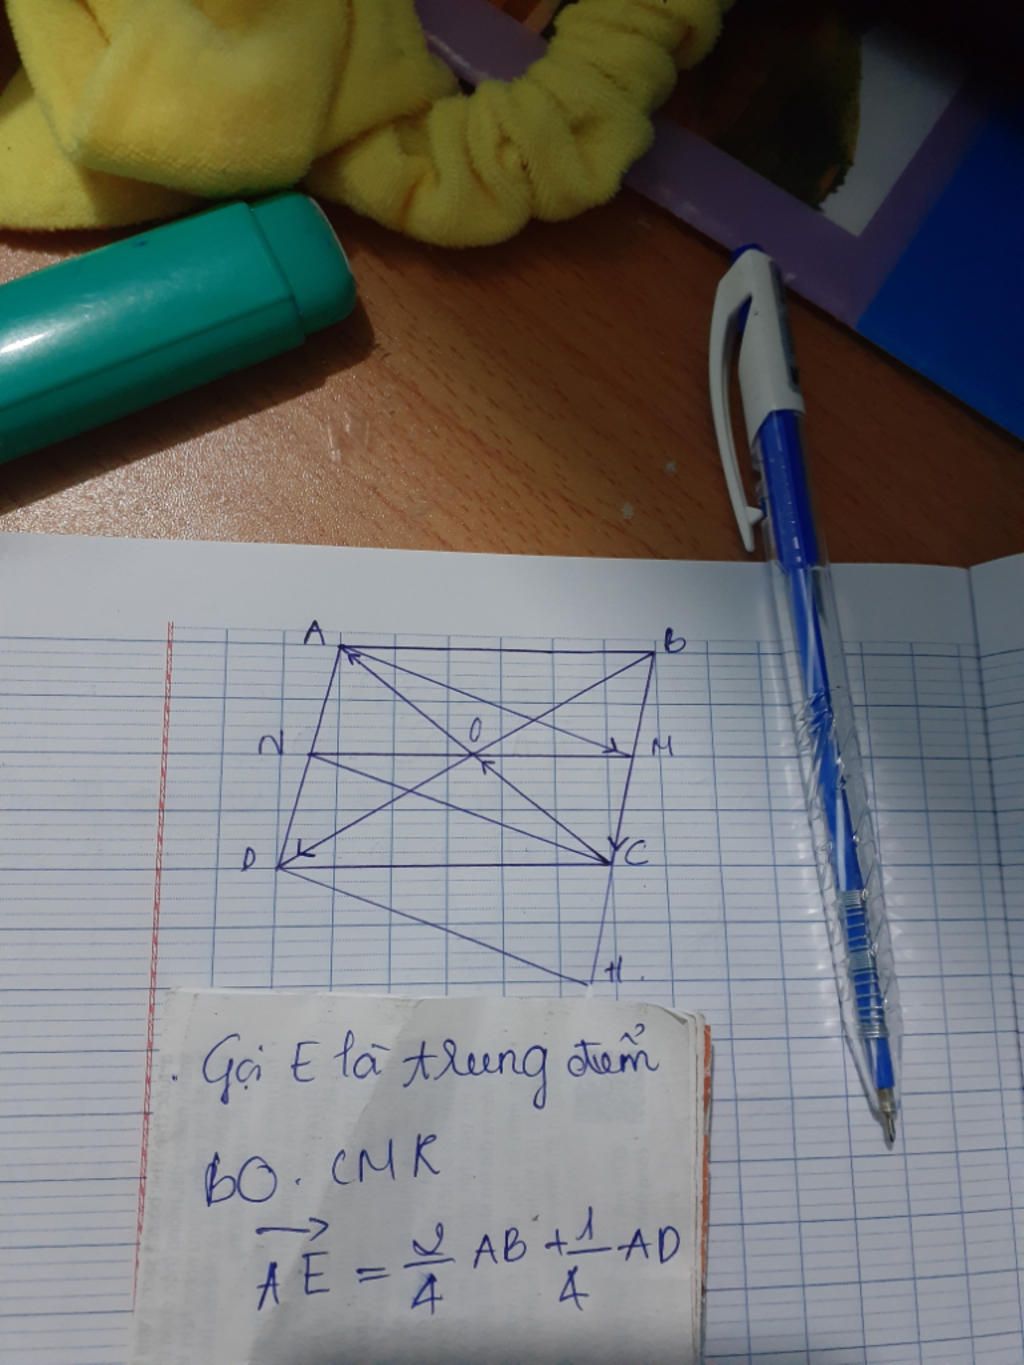 A B
N O M
D C
H
. Gọi E là trung điểm
BO. CMR
AE = /4 AB + 1/4 AD